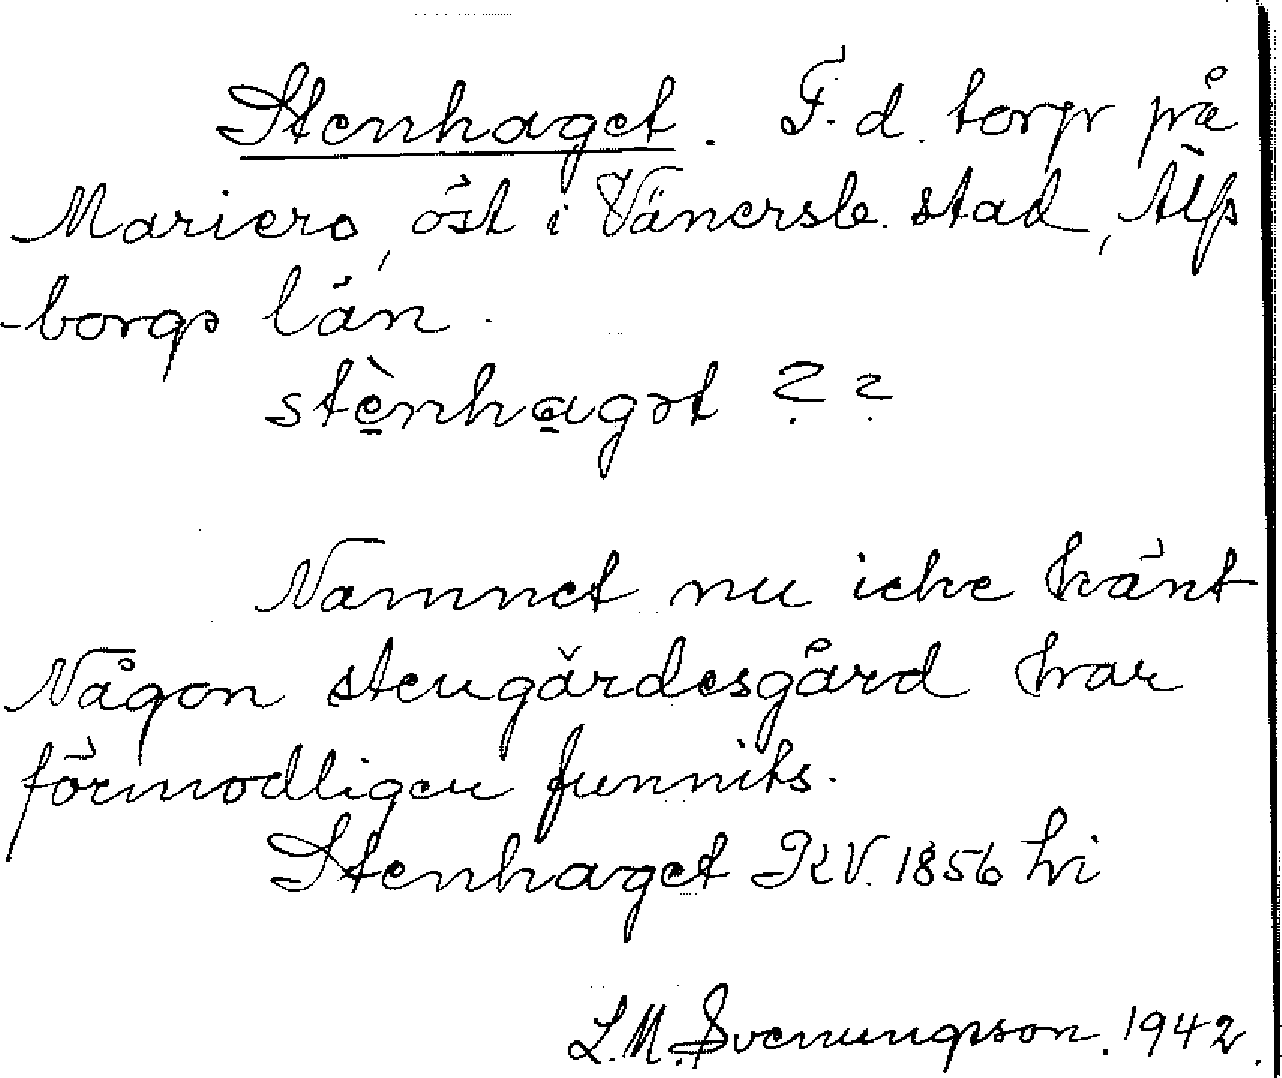 Stenhaget. F. d. torp på
Mariero, öst i Vänersb. stad, Älfs
-borgs län.
stènhagət ? ?
Namnet nu icke känt
Någon stengärdesgård har
förmodligen funnits.
Stenhaget RV. 1856 hi
L.M. Svenungson. 1942.